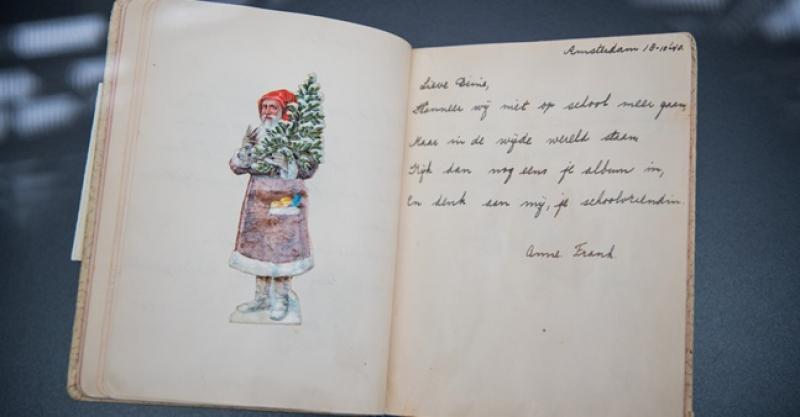 Amsterdam 18-10-'40.
Lieve Dinie,
Wanneer wij niet op school meer gaan,
Maar in de wijde wereld staan
Kijk dan nog eens je album in,
En denk aan mij, je schoolvriendin.
Anne Frank